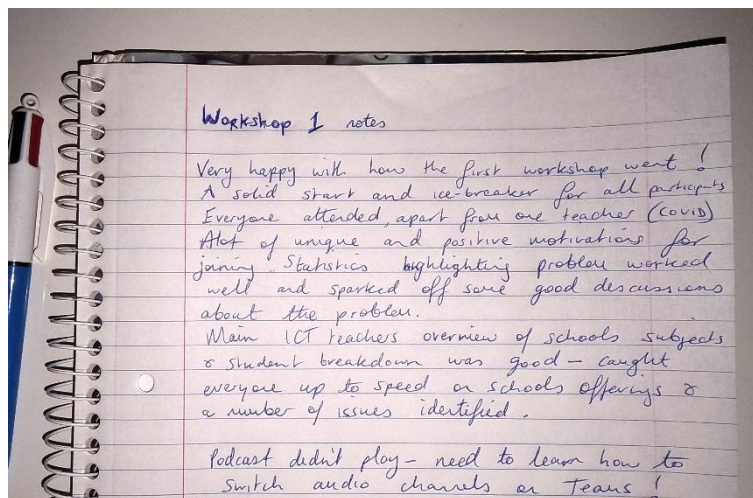 Workshop 1 notes
Very happy with how the first workshop went!
A solid start and ice-breaker for all participts
Everyone attended, apart from one teacher (COVID)
Alot of unique and positive motivations for
joining. Statistics highlighting problem worked
well and sparked off some good discussions
about the problem.
Main ICT teachers overview of schools subjects
& student breakdown was good – caught
everyone up to speed on schools offerings &
a number of issues identified.
Podcast didn't play – need to learn how to
switch audio channels on Teams!